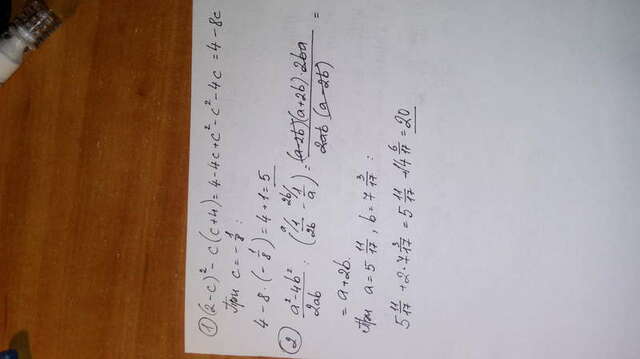 ① (2-c)² - c(c+4) = 4-4c+c²-c²-4c = 4-8c
при c = -1/8 :
4-8·(-1/8) = 4+1 = 5
② (a²-4b²)/(2ab) : (1/2b - 1/a) = ((a-2b)(a+2b)·2ba)/(2ab(a-2b)) =
= a+2b.
при a = 5 11/17, b = 7 3/17 :
5 11/17 + 2·7 3/17 = 5 11/17 + 14 6/17 = 20